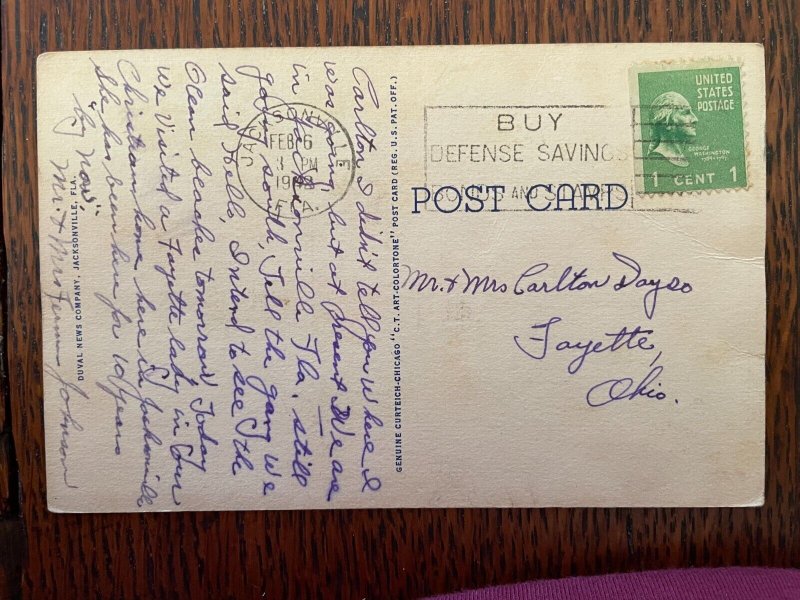 Carlton I didn't tell you where I
was going, but at present We are
in Jacksonville Fla. still
going south, Tell the gang we
said Hello, Intend to see the
Ocean beaches tomorrow. Today
we visited a Fayette lady in Our
Christian home here in Jacksonville
She has been here for 10 years
"By Now"
Mr. + Mrs Johnson
DUVAL NEWS COMPANY, JACKSONVILLE, FLA.
GENUINE CURTEICH-CHICAGO "C.T. ART-COLORTONE" POST CARD (REG. U.S. PAT. OFF.)
JACKSONVILLE
FEB 6
3 PM
FLA.
BUY
DEFENSE SAVINGS
BONDS AND STAMPS
UNITED
STATES
POSTAGE
GEORGE
WASHINGTON
1 CENT 1
POST CARD
Mr. + Mrs Carlton Dayso
Fayette,
Ohio.